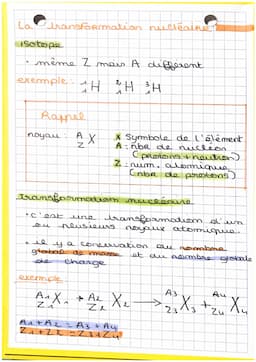 La transformation nucléaire
isotope
• même Z mais A différent
exemple : ¹₁H ²₁H ³₁H
Rappel
noyau : A Z X X Symbole de l'élément
A : nbr de nucléon
(protons + neutron)
Z : num. atomique
(nbr de protons)
Transformation nucléaire
• c'est une transformation d'un
ou plusieurs noyaux atomique.
• il y a conservation du nombre
global de masse et du nombre global
de charge
exemple
A₁ Z₁ X₁ + A₂ Z₂ X₂ → A₃ Z₃ X₃ + A₄ Z₄ X₄
A₁ + A₂ = A₃ + A₄
Z₁ + Z₂ = Z₃ + Z₄